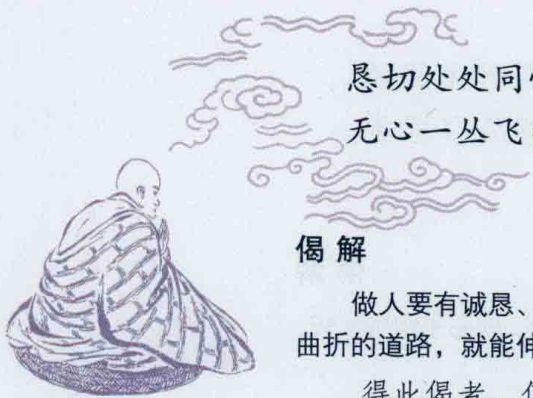 恳切处处同
无心一丛飞
偈解
做人要有诚恳、
曲折的道路，就能伸
得此偈者